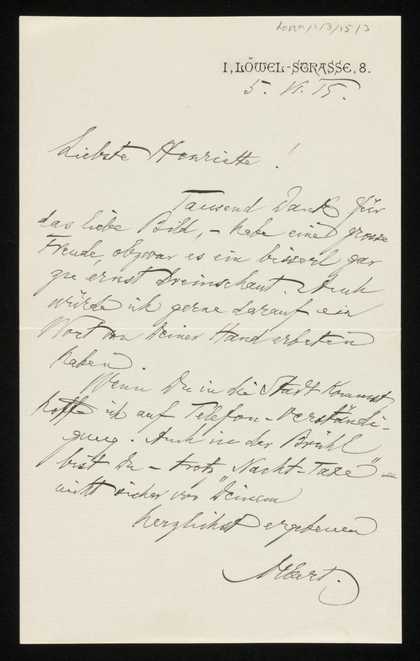 I, LÖWEL-STRASSE, 8.
5. VI. 15.
Liebste Henriette!
Tausend Dank für
das liebe Bild, – habe eine grosse
Freude, obzwar es ein bisserl gar
zu ernst dreinschaut. Auch
würde ich gerne darauf ein
Wort von Deiner Hand erbeten
haben.
Wenn Du in die Stadt kommst
hoffe ich auf Telefon-Verständi-
gung. Auch in der Brühl
bist Du – trotz "Nacht-Taxe" –
nicht sicher vor Deinem
herzlichst ergebenen